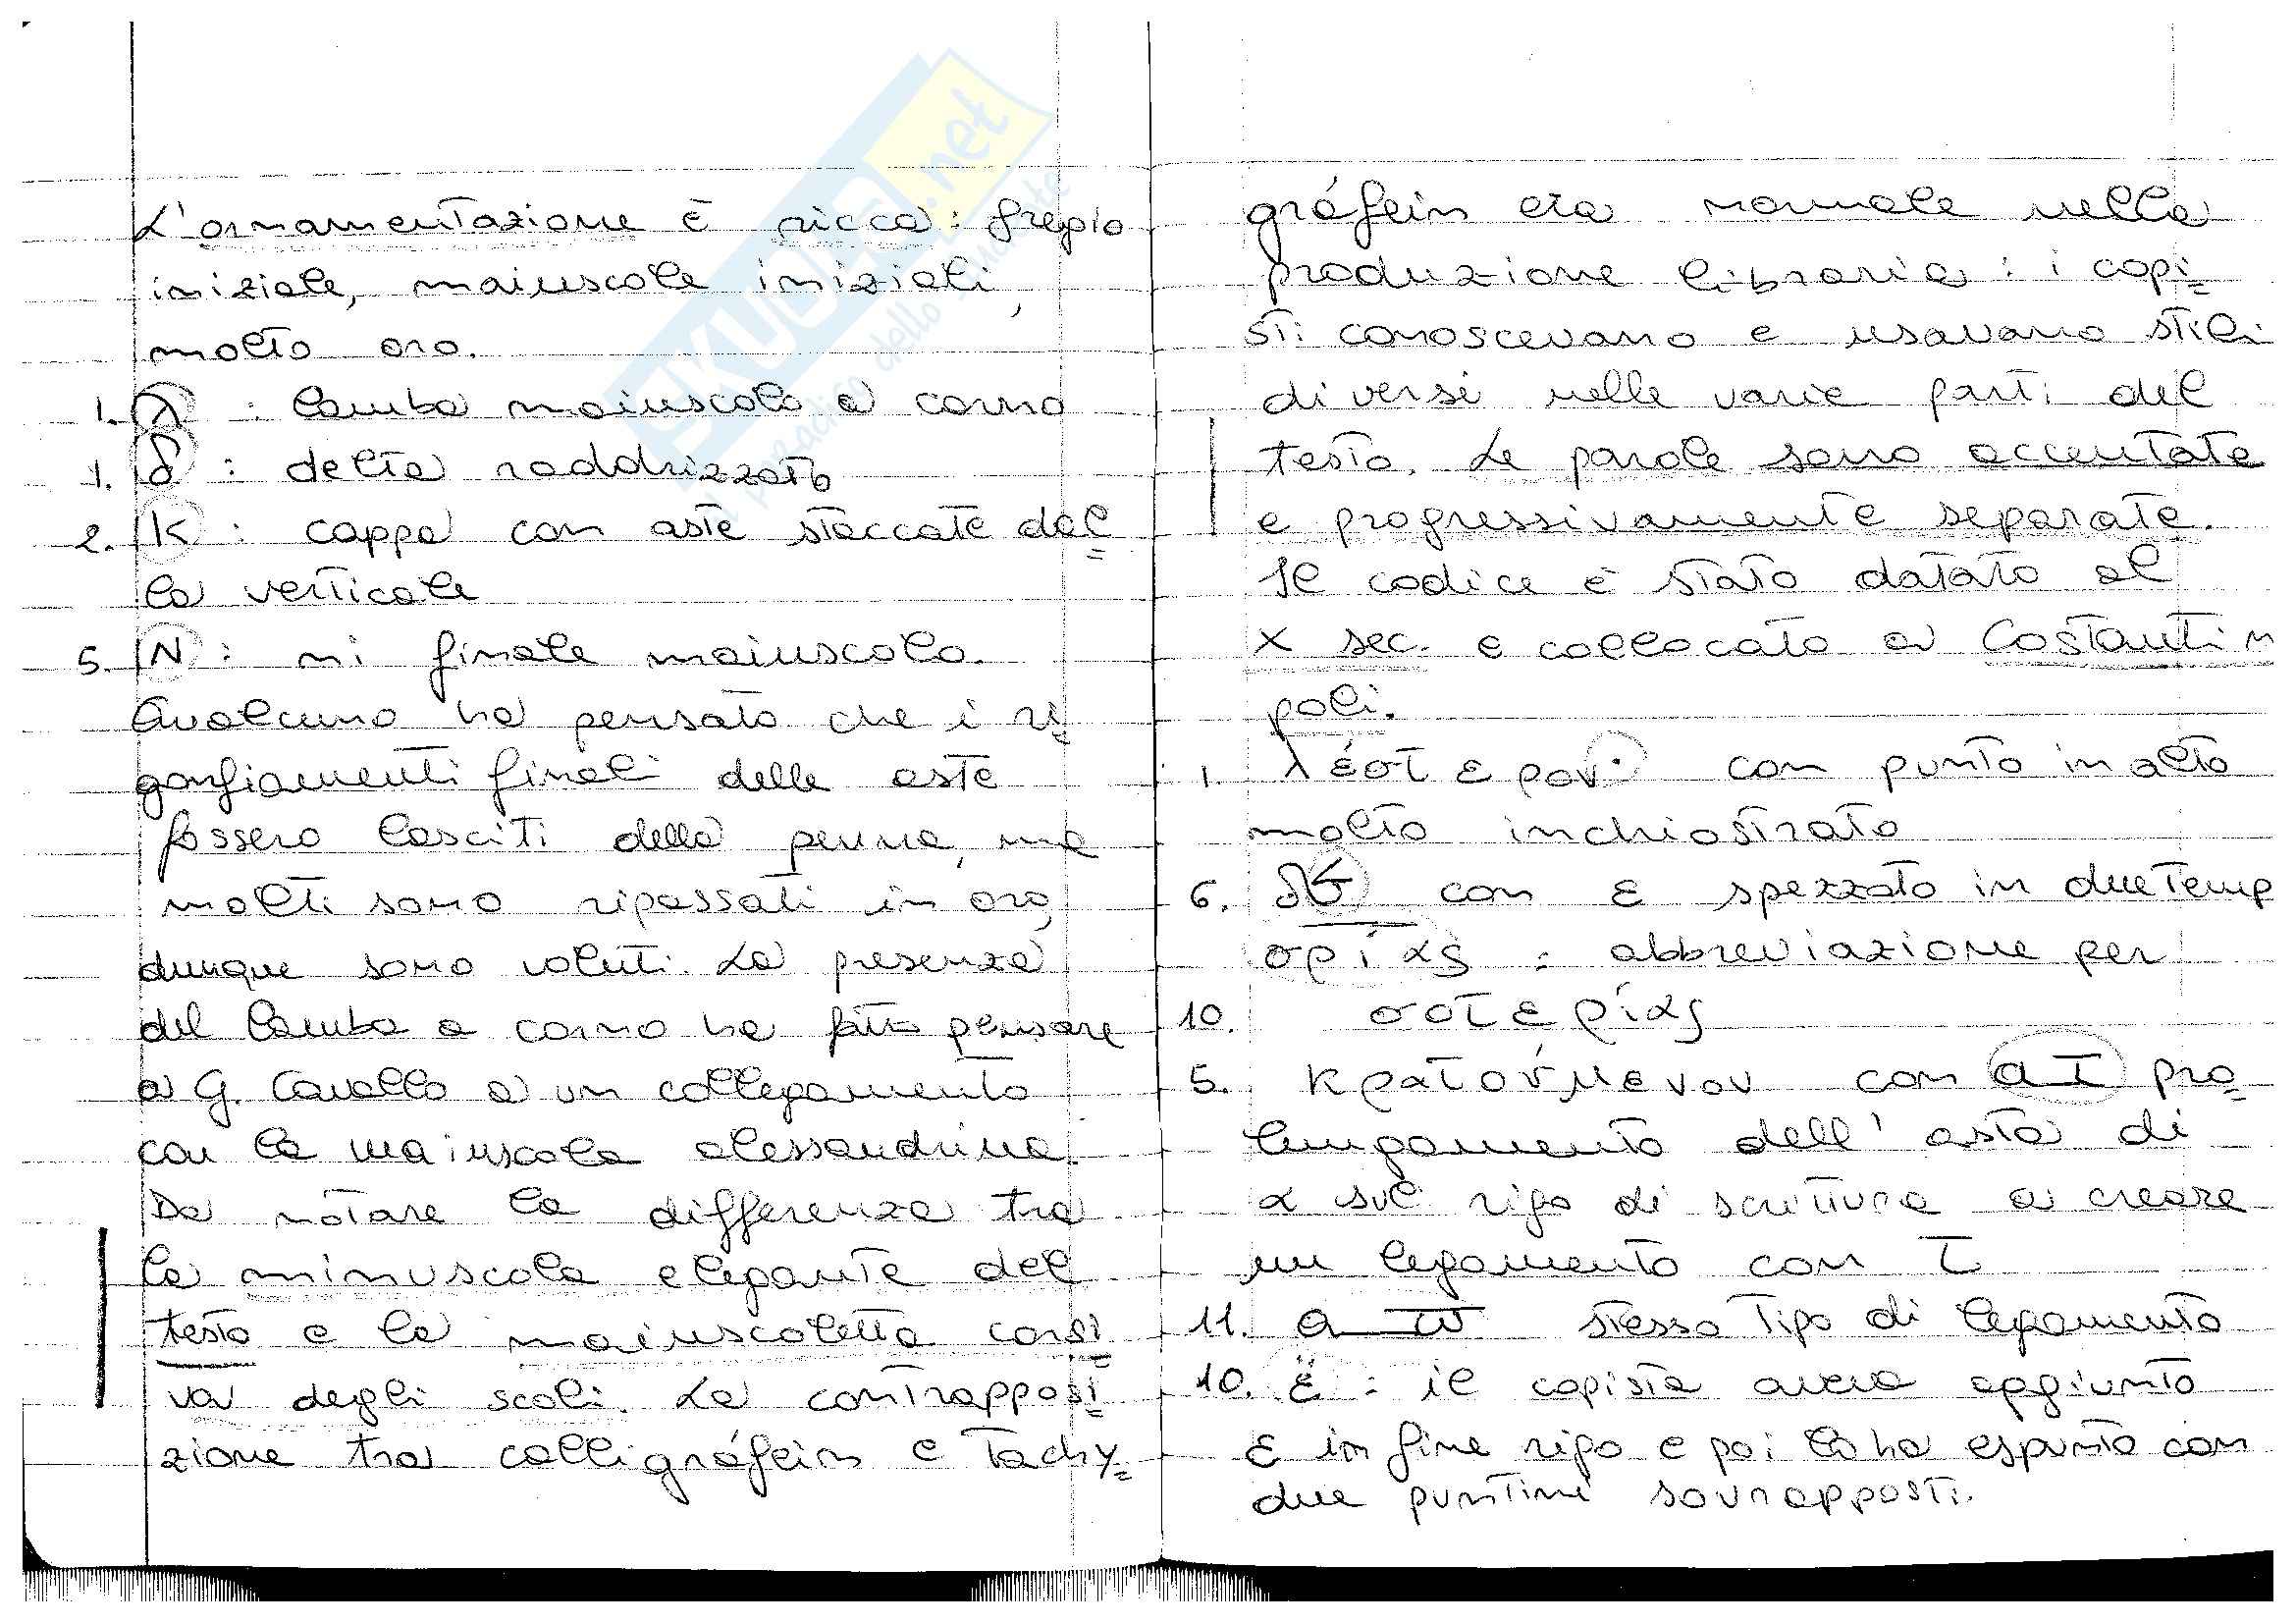 L'ornamentazione è ricca: fregio
iniziale, maiuscole iniziali,
molto oro.
1. λ : lamba maiuscolo a corno
1. δ : delta raddrizzato
2. K : cappa con aste staccate dal=
la verticale
5. N : ni finale maiuscolo.
Qualcuno ha pensato che i ri=
gonfiamenti finali delle aste
fossero lasciti della penna, ma
molti sono ripassati in oro,
dunque sono voluti. La presenza
del lamba a corno ha fatto pensare
a G. Cavallo a un collegamento
con la maiuscola alessandrina.
Da notare la differenza tra
la minuscola elegante del
testo e la maiuscoletta corsi=
va degli scoli. La contrapposi=
zione tra calligráfein e tachy=
gráfein era normale nella
produzione libraria: i copi=
sti conoscevano e usavano stili
diversi nelle varie parti del
testo. Le parole sono accentate
e progressivamente separate.
Il codice è stato datato al
X sec. e collocato a Costantin
poli.
1. λέστερον· con punto in alto
molto inchiostrato
6. δε con ε spezzato in due temp
σρίας : abbreviazione per
10. σοτερίας
5. κρατούμενον con ατ pro=
lungamento dell'asta di
α sul rigo di scrittura a creare
un legamento con τ
11. α ω stesso tipo di legamento
10. ε̈ : il copista aveva aggiunto
ε in fine rigo e poi lo ha espunto con
due puntini sovrapposti.
il paradiso dello
.net